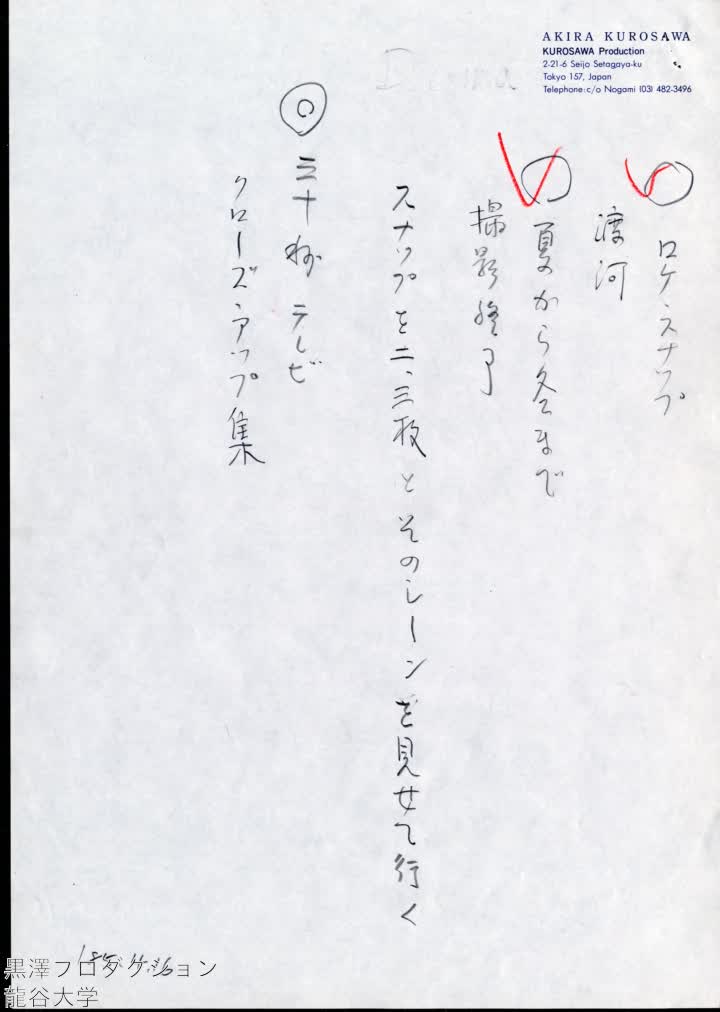 AKIRA KUROSAWA
KUROSAWA Production
2-21-6 Seijo Setagaya-ku
Tokyo 157, Japan
Telephone:c/o Nogami (03) 482-3496
ロケ・スナップ
渡河
夏から冬まで
撮影終了
スナップを二、三枚とそのシーンを見せて行く
三十秒 テレビ
クローズ・アップ集
黒澤プロダクション
龍谷大学